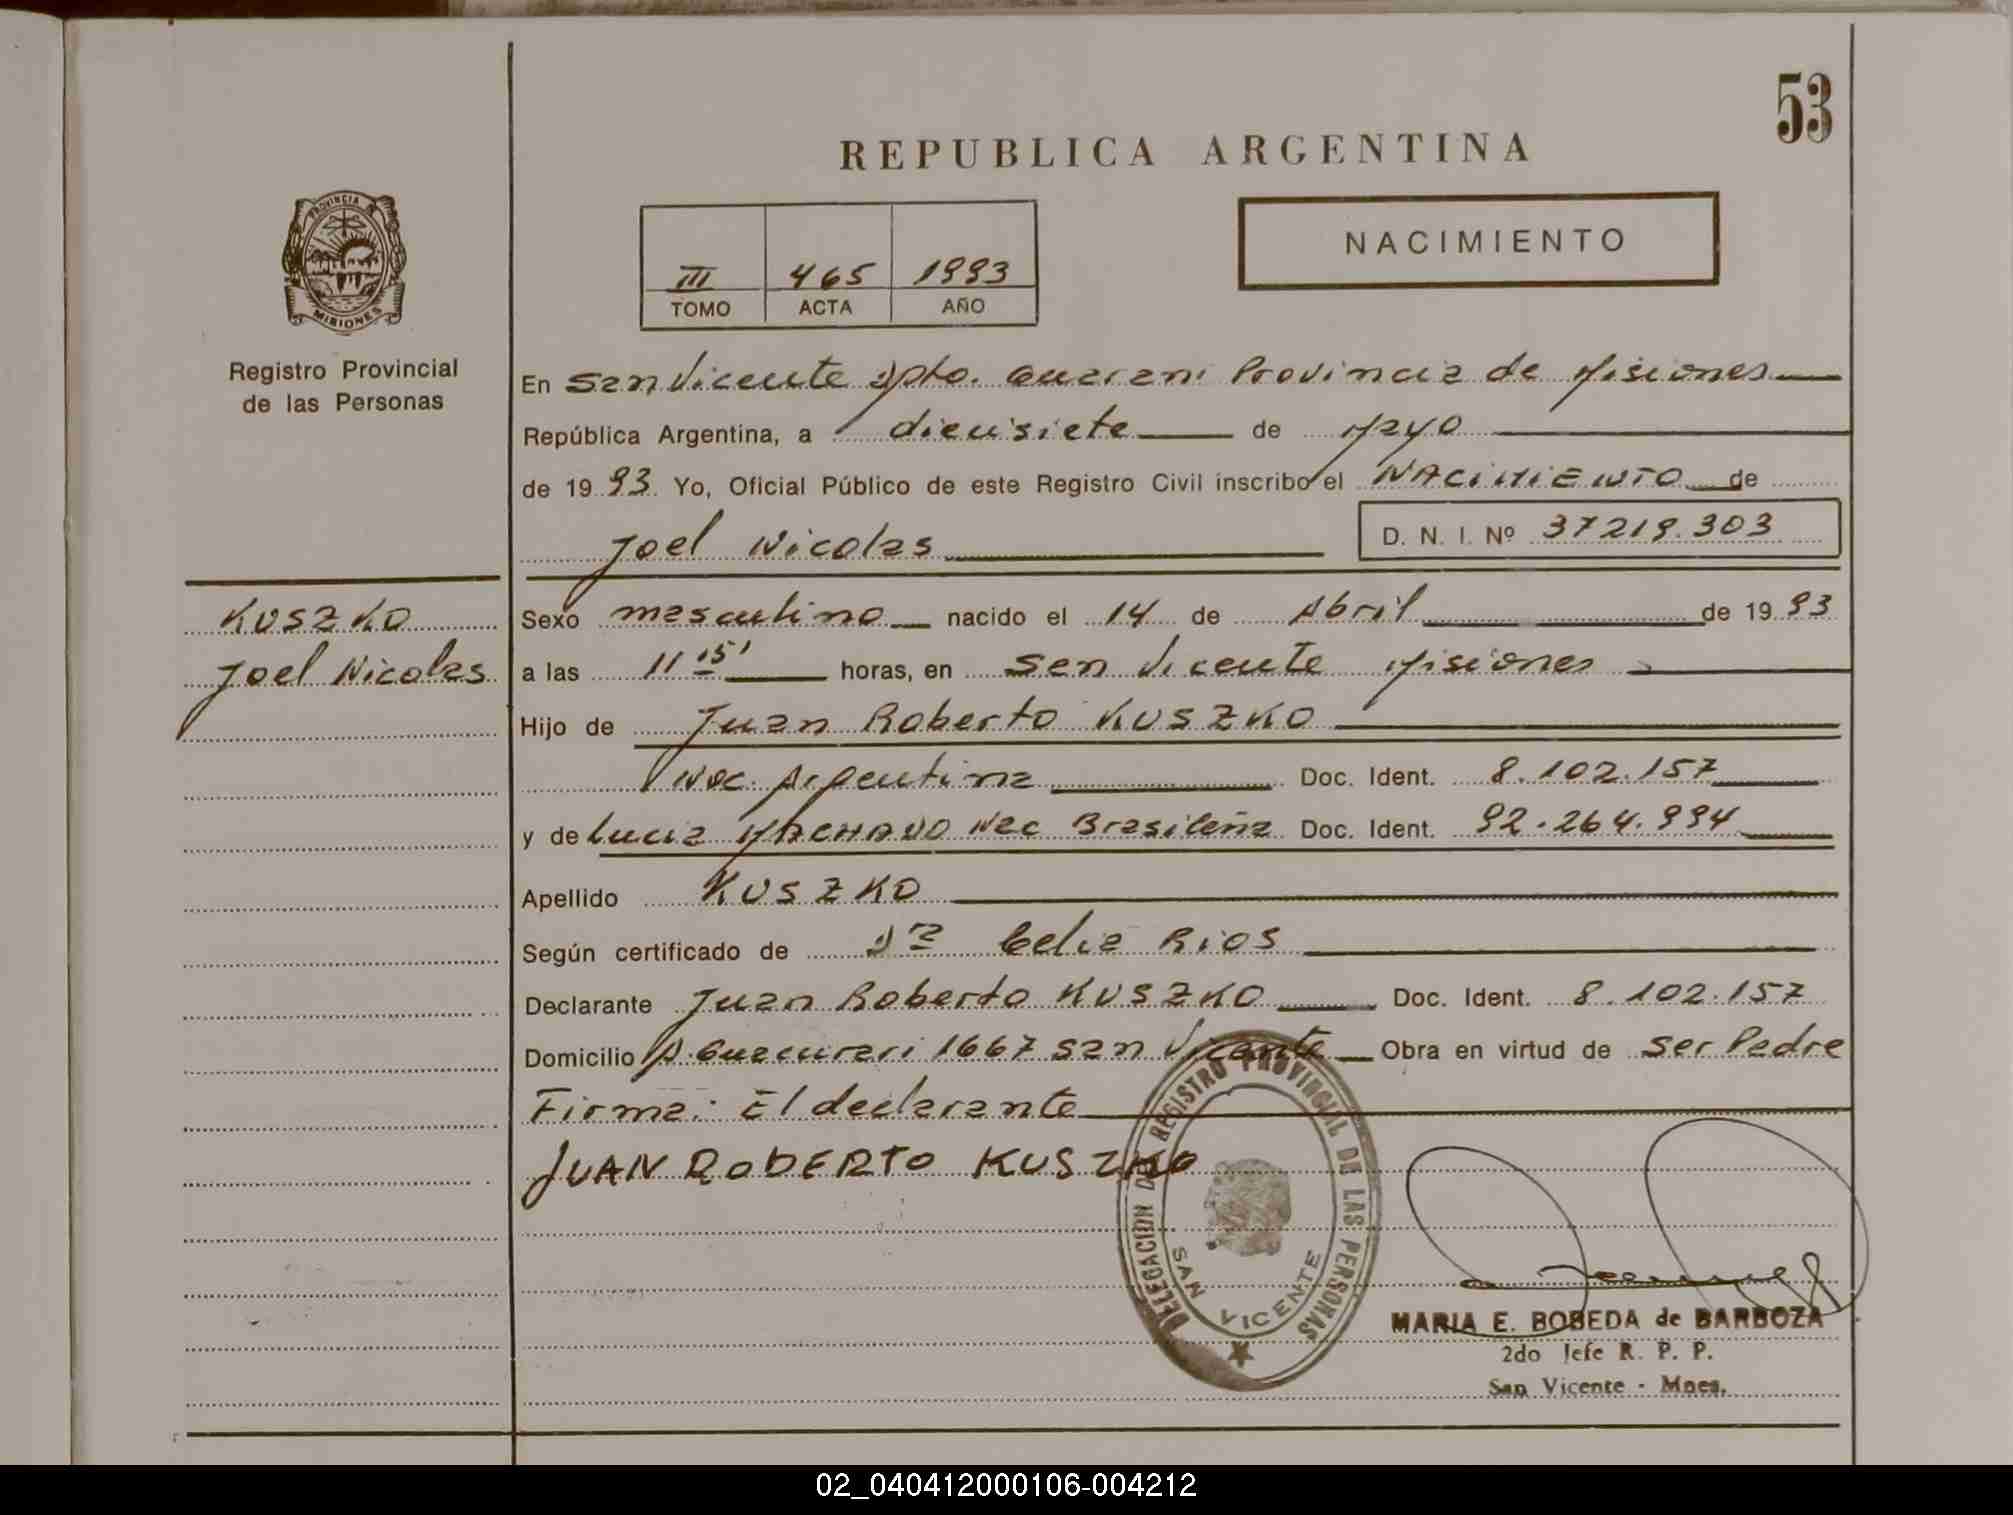 53
REPUBLICA ARGENTINA
PROVINCIA DE
MISIONES
III 465 1993
TOMO ACTA AÑO
NACIMIENTO
Registro Provincial
de las Personas
En San Vicente Dpto. Guarani Provincia de Misiones
República Argentina, a diecisiete de Mayo
de 1993. Yo, Oficial Público de este Registro Civil inscribo el NACIMIENTO de
Joel Nicolas D. N. I. Nº 37219.303
KUSZKO
Joel Nicolas
Sexo masculino nacido el 14 de Abril de 1993
a las 11 15' horas, en San Vicente Misiones
Hijo de Juan Roberto KUSZKO
Nac. Argentina Doc. Ident. 8.102.157
y de Lucia MACHADO Nac Brasileña Doc. Ident. 92.264.994
Apellido KUSZKO
Según certificado de Dra Celia Rios
Declarante Juan Roberto KUSZKO Doc. Ident. 8.102.157
Domicilio A. Guacurari 1667 San Vicente Obra en virtud de ser Padre
Firma: El declarante
JUAN ROBERTO KUSZKO
DELEGACION DEL REGISTRO PROVINCIAL DE LAS PERSONAS
SAN VICENTE
MARIA E. BOBEDA de BARBOZA
2do Jefe R. P. P.
San Vicente - Mnes.
02_040412000106-004212